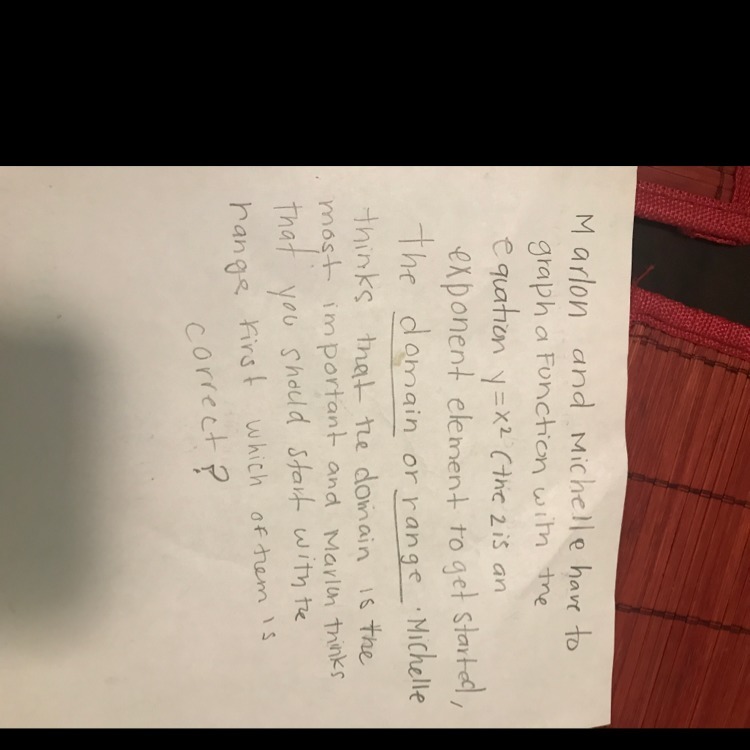 Marlon and Michelle have to
graph a Function with the
equation y=x² (the 2 is an
exponent element to get started,
the domain or range. Michelle
thinks that the domain is the
most important and Marlon thinks
that you should start with the
range first which of them is
correct?